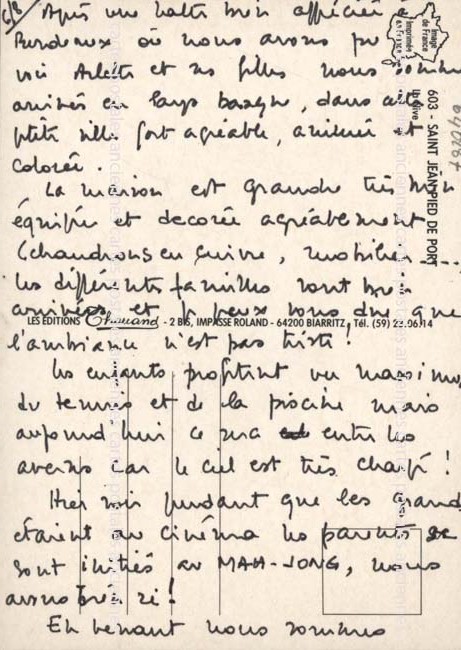 6/8 Après une halte bien appréciée
Bordeaux où nous avons pu
voir Arlette et ses filles nous sommes
arrivés en pays basque, dans cette
ptite ville fort agréable, animée et
colorée.
La maison est grande très bien
équipée et decorée agréablement
(chaudrons en cuivre, mobilier ...
les différentes familles sont bien
arrivées et je peux vous dire que
l'ambiance n'est pas triste!
Les enfants profitent au maximum
du tennis et de la piscine mais
aujourd'hui ce sera entre les
averses car le ciel est très chargé!
Hier soir pendant que les grands
étaient au cinéma les parents se
sont initiés au MAH-JONG, nous
avons bien ri!
En venant nous sommes
Image
de France
Imprimés
603 - SAINT JEAN PIED DE PORT
LES ÉDITIONS Chouand - 2 BIS, IMPASSE ROLAND - 64200 BIARRITZ, Tél. (59) 23.96.14